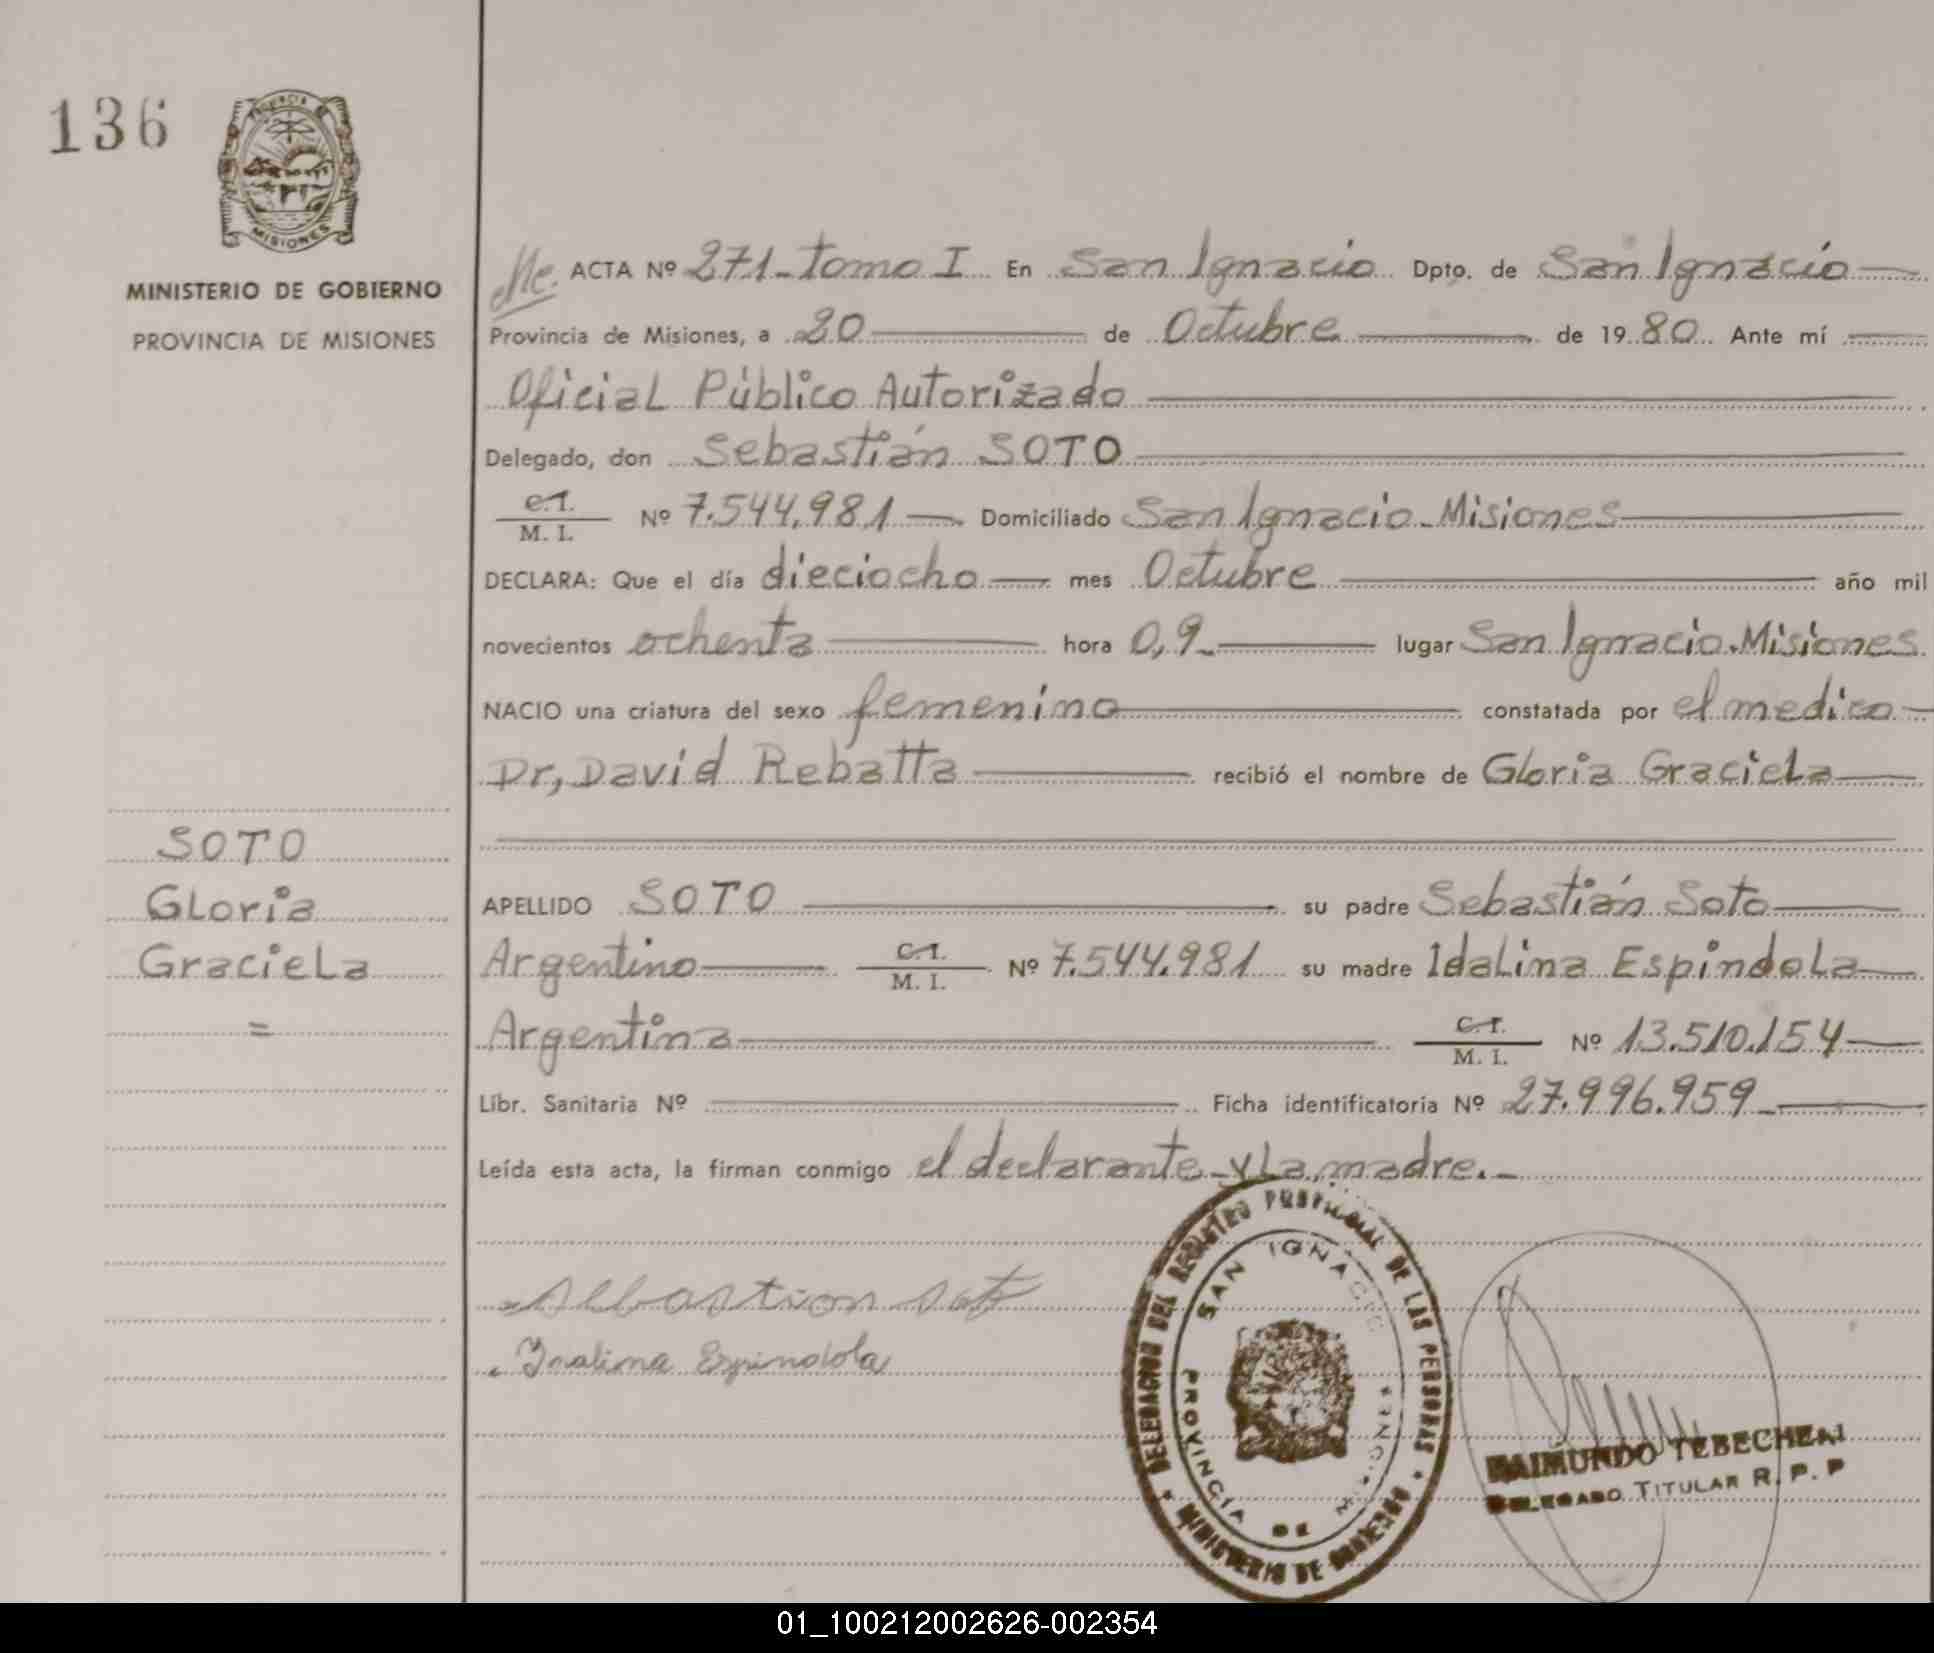 136
PROVINCIA DE
MISIONES
MINISTERIO DE GOBIERNO
PROVINCIA DE MISIONES
SOTO
Gloria
Graciela
=
ACTA Nº 271-tomo I En San Ignacio Dpto. de San Ignacio
Provincia de Misiones, a 20 de Octubre de 1980 Ante mí
Oficial Público Autorizado
Delegado, don Sebastián SOTO
C.I.
M. I. Nº 7.544.981 Domiciliado San Ignacio-Misiones
DECLARA: Que el día dieciocho mes Octubre año mil
novecientos ochenta hora 0,9 lugar San Ignacio-Misiones
NACIO una criatura del sexo femenino constatada por el medico
Dr, David Rebatta recibió el nombre de Gloria Graciela
APELLIDO SOTO su padre Sebastián Soto
Argentino C.I. M. I. Nº 7.544.981 su madre Idalina Espindola
Argentina C.I. M. I. Nº 13.510.154
Libr. Sanitaria Nº Ficha identificatoria Nº 27.996.959
Leída esta acta, la firman conmigo el declarante y la madre.-
Sebastian Soto
Idalina Espindola
DELEGACION DEL REGISTRO PROVINCIAL DE LAS PERSONAS
SAN IGNACIO
PROVINCIA DE
MINISTERIO DE GOBIERNO
RAIMUNDO TEBECHERI
DELEGADO TITULAR R. P. P
01_100212002626-002354